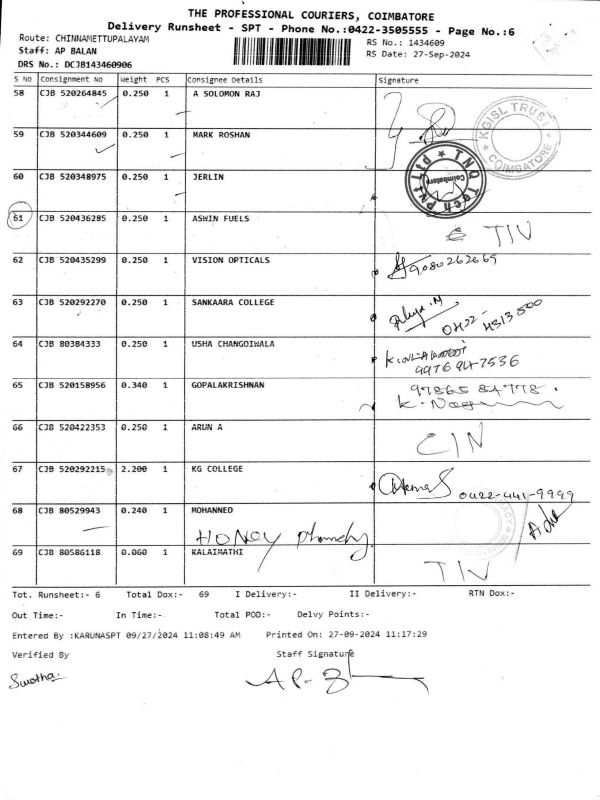 THE PROFESSIONAL COURIERS, COIMBATORE
Delivery Runsheet - SPT - Phone No.:0422-3505555 - Page No.:6
Route: CHINNAMETTUPALAYAM
RS No.: 1434609
Staff: AP BALAN
RS Date: 27-Sep-2024
DRS No.: DCJB143460906
S NO Consignment No Weight PCS Consignee Details Signature
58 CJB 520264845 0.250 1 A SOLOMON RAJ
KGISL TRUST COIMBATORE
59 CJB 520344609 0.250 1 MARK ROSHAN
TNQ Tech Pvt Ltd Coimbatore
60 CJB 520348975 0.250 1 JERLIN
61 CJB 520436285 0.250 1 ASWIN FUELS TIN
62 CJB 520435299 0.250 1 VISION OPTICALS 9080262669
63 CJB 520292270 0.250 1 SANKAARA COLLEGE
0422-4313500
64 CJB 80384333 0.250 1 USHA CHANGOIWALA
9976947536
65 CJB 520158956 0.340 1 GOPALAKRISHNAN 97865 84778.
66 CJB 520422353 0.250 1 ARUN A CIN
67 CJB 520292215 2.200 1 KG COLLEGE
0422-441-9999
68 CJB 80529943 0.240 1 MOHANNED
HONEY
69 CJB 80586118 0.060 1 KALAIMATHI TIN
Tot. Runsheet:- 6 Total Dox:- 69 I Delivery:- II Delivery:- RTN Dox:-
Out Time:- In Time:- Total POD:- Delvy Points:-
Entered By :KARUNASPT 09/27/2024 11:08:49 AM Printed On: 27-09-2024 11:17:29
Verified By Staff Signature
Swatha.